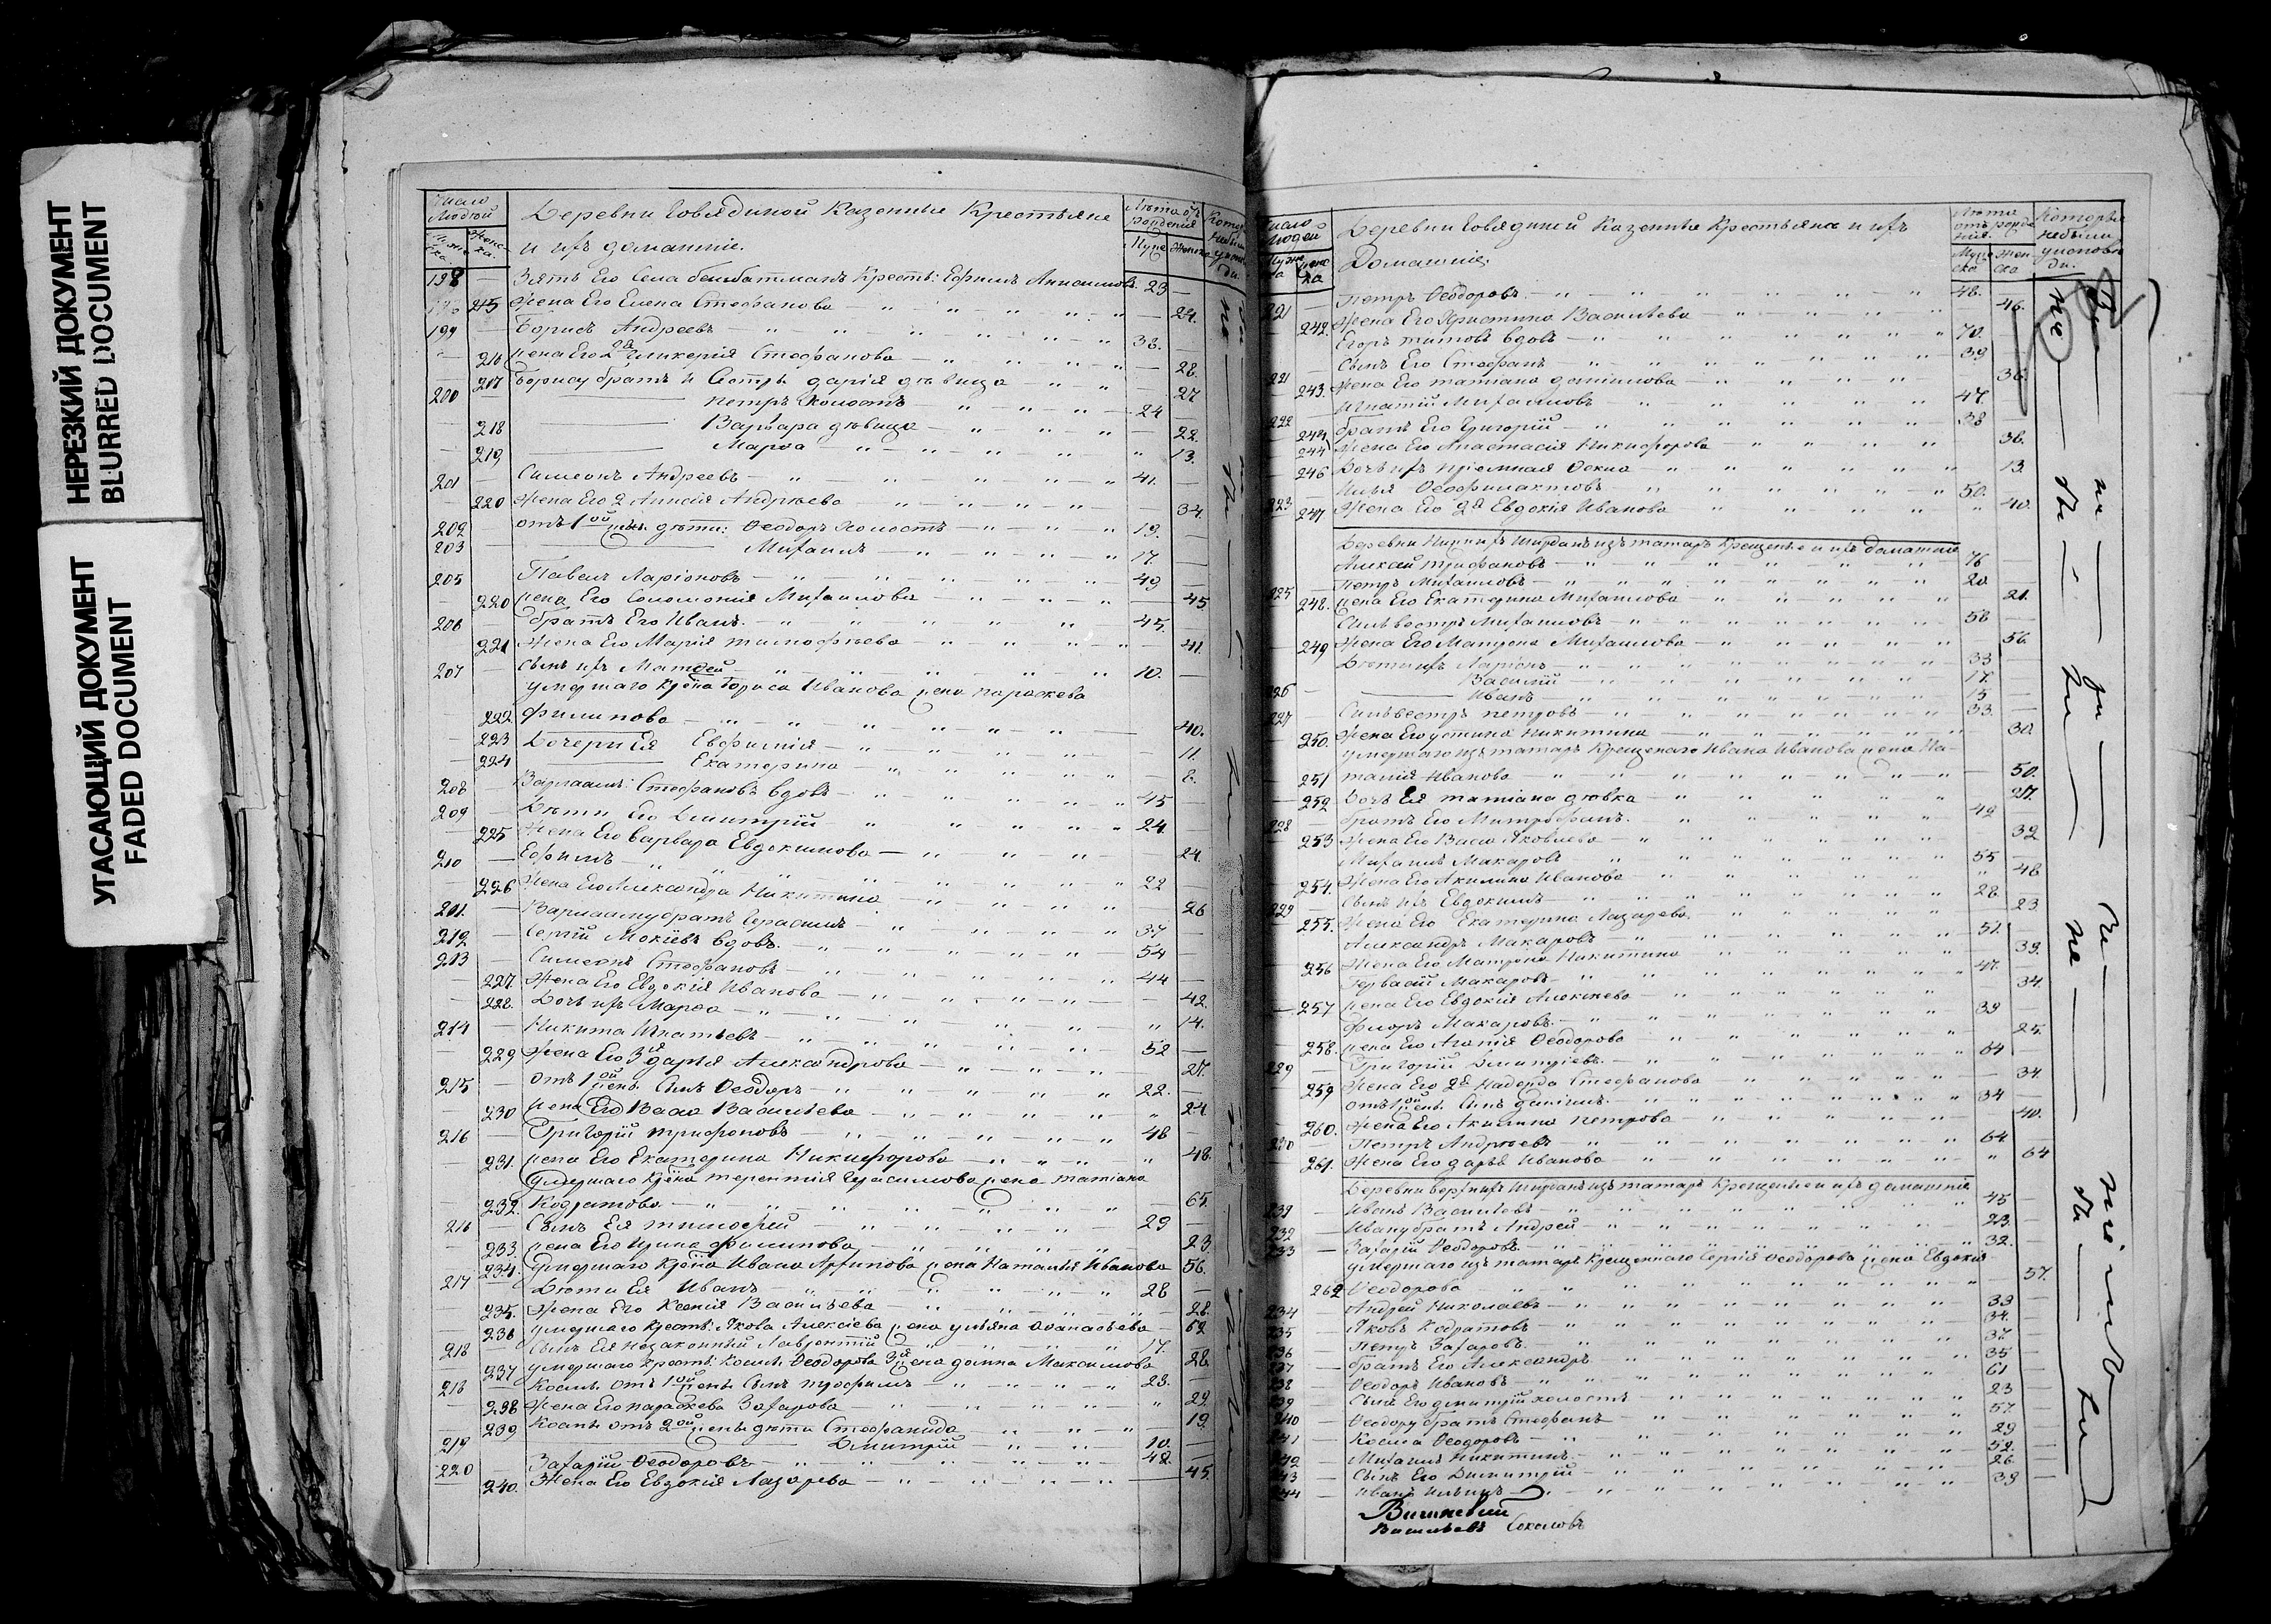 НЕРЕЗКИЙ ДОКУМЕНТ
BLURRED DOCUMENT
УГАСАЮЩИЙ ДОКУМЕНТ
FADED DOCUMENT
Число Людей
Деревни Говядиной Казенные Крестьяне
и ихъ домашніе.
198 Зять Его Села Крестъ: Ефимъ 23
215 Жена Его Елена Стефанова 24.
199 Борисъ Андреевъ 38.
216 жена Его 2я Гликерія Стефанова 28.
217 Борису братъ и Сестры дарія дѣвица 27
200 петръ Холостъ 24
218 Варвара дѣвица 22.
219 Марѳа 13.
201 Симеонъ Андреевъ 41.
220 Жена Его 2 Аннсія Андреева 34.
202 отъ 1ой жены дѣти: Ѳеодоръ Холостъ 19.
203 Михаилъ 17.
205 Павелъ Ларіоновъ 49
220 жена Его Соломонія Михаилова 45
206 братъ Его Иванъ. 45.
221 Жена Его Марія тимофѣева 41.
207 Сынъ ихъ Матѳей 10.
умершаго Крѣна Бориса Иванова жена параскева
222 Филипова 40.
223 Дочери Ея Евфимія 11.
224 Екатерина 8.
208 Варлаамъ Стефановъ вдовъ 45
209 Дѣти Его Димитрій 24
225 Жена Его Варвара Евдокимова 24.
210 Ефимъ 22
226 Жена Его Александра Никитина 26
201. Варлааму братъ Герасимъ 37
212 Сергій Мокіевъ вдовъ. 54
213 Симеонъ Стефановъ 44
227. Жена Его Евдокія Иванова 42.
228. Дочь ихъ Марѳа 14.
214 Никита Игнатьевъ 52
229 Жена Его 3я дарья Александрова 27.
215 отъ 1ой жены Сынъ Ѳеодоръ 22.
230 жена Его Васса Васильева 24
216 Григорій трифоновъ 48
231. жена Его Екатерина Никифорова 48.
умершаго Крѣна терентія Герасимова жена татіана
232. Кодратова 65.
216 Сынъ Ея тимоѳей 29
233. жена Его Ирина Филипова 23.
234. умершаго Крѣна Ивана Архипова жена Наталья Иванова 56.
217 Дѣти Ея Иванъ 28
235. Жена Его Ксенія Васильева 28.
236 умершаго Крестъ: Якова Алексѣева жена ульяна Аѳанасьева 62
218 Сынъ Ея незаконный Лаврентій 17.
237 умершаго Крестъ: Космы Ѳеодорова 3я жена домна Максимова 28.
218 Космы отъ 1ой жены Сынъ трофимъ 23.
238 Жена Его параскева Захарова 29.
239 Космы отъ 2ой жены дѣти Стефанида 19.
219 Димитрій 10.
220 Захарій Ѳеодоровъ 48.
240. Жена Его Евдокія Лазарева 45.
Число Людей
Деревни Говядиной Казенные Крестьяне и ихъ
Домашніе.
Лѣта отъ рожденія.
Которые небыли у исповѣди.
221 петръ Ѳеодоровъ 48.
242. Жена Его Христина Васильева 46.
Егоръ титовъ вдовъ 70.
221 Сынъ Его Стефанъ 39
243. Жена Его татіана даніилова 36.
Игнатій Михаиловъ 47.
222 братъ Его Григорій 38
244 Жена Его Анастасія Никифорова 36.
246 Дочь ихъ пріемная Ѳекла 13.
Илья Ѳеофилактовъ 50.
223 247 Жена Его 2я Евдокія Иванова 40.
Деревни Нижнихъ Ширданъ изъ татаръ Крещеные и ихъ домашніе
Алексій трифановъ 76
225 Петръ Михаиловъ 20
248. жена Его Екатерина Михаилова 21.
Сильвестръ Михаиловъ 58
249 Жена Его Матрена Михаилова 56.
Дѣти ихъ Ларіонъ 33
Василій 17.
226 Иванъ 15
227 Сильвестръ петровъ 33.
250. Жена Его устина Никитина 30.
умершаго изъ татаръ Крещенаго Ивана Иванова жена На-
251 талія Иванова 50.
252 Дочь Ея татіана дѣвка 27.
228 братъ Его Митрофанъ. 42
253 Жена Его Васса Яковлева 32
Михаилъ Макаровъ 55
254. Жена Его Акилина Иванова 48
229 Сынъ ихъ Евдокимъ 28.
255. Жена Его Екатерина Лазарева. 23.
Александръ Макаровъ 51.
256 Жена Его Матрона Никитина 39.
Гервасій Макаровъ 47.
257 жена Его Евдокія Алексѣева 34.
Флоръ Макаровъ. 39
258. жена Его Агапія Ѳеодорова 25.
229 Григорій Димитріевъ 64
259 Жена Его 2я Надежда Стефанова 34.
отъ 1ой жены Сынъ даніилъ 34
260. Жена Его Акилина петрова 40.
230 Петръ Андреевъ 64
261. Жена Его дарья Иванова 64
Деревни верхнихъ Ширданъ изъ татаръ Крещеные и ихъ домашніе
Иванъ Васильевъ 45
232 Ивану братъ Андрей 23.
233 Захарій Ѳеодоровъ 32.
умершаго изъ татаръ Крещеннаго Сергія Ѳеодорова жена Евдокія
262 Ѳеодорова 57.
234 Андрей Николаевъ 39
235 Яковъ Кодратовъ 34.
236 Петръ Захаровъ. 37
237 братъ Его Александръ 35
238 Ѳеодоръ Ивановъ 61
239 Сынъ Его дмитрій холостъ 23
240 Ѳеодору братъ Стефанъ 57.
241 Косма Ѳеодоровъ 29
242 Михаилъ Никитинъ 52.
243 Сынъ Его Димитрій 26.
244 Иванъ Ильинъ 39
Васильевъ Соколовъ